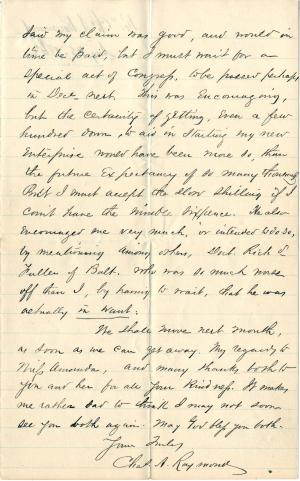 Saw my claim was good, and would in
time be paid, but I must wait for a
special act of Congress, to be passed perhaps
in Dec. next. This was Encouraging,
but the certainity of getting, Even a few
hundred down, to aid in starting my new
Enterprise would have been more so, than
the future Expectancy of so many thousands
But I must accept the slow shilling if I
can't have the nimble sixpence. He also
encouraged me very much, or intended to do so,
by mentioning among others, Doct. Rich S
Fuller of Balt. who was so much worse
off than I, by having to wait, that he was
actually in want.
We shall move next month,
as soon as we can get away. My regards to
Miss Amanda, and many thanks both to
you and her for all your kindness. It makes
me rather sad to think I may not soon
see you both again. May God bless you both.
Yours Truly
Chas. A. Raymond